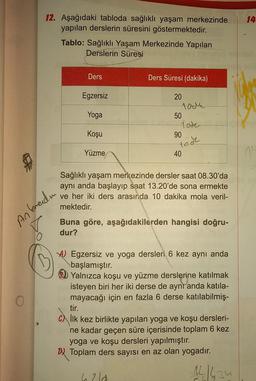 12. Aşağıdaki tabloda sağlıklı yaşam merkezinde
yapılan derslerin süresini göstermektedir.
Tablo: Sağlıklı Yaşam Merkezinde Yapılan
Derslerin Süresi
Ders Ders Süresi (dakika)
Egzersiz 20
Yoga 50
Koşu 90
Yüzme 40
Sağlıklı yaşam merkezinde dersler saat 08.30'da
aynı anda başlayıp saat 13.20'de sona ermekte
ve her iki ders arasında 10 dakika mola veril-
mektedir.
Buna göre, aşağıdakilerden hangisi doğru-
dur?
A) Egzersiz ve yoga dersleri 6 kez aynı anda
başlamıştır.
B) Yalnızca koşu ve yüzme derslerine katılmak
isteyen biri her iki derse de aynı anda katıla-
mayacağı için en fazla 6 derse katılabilmiş-
tir.
C) İlk kez birlikte yapılan yoga ve koşu dersleri-
ne kadar geçen süre içerisinde toplam 6 kez
yoga ve koşu dersleri yapılmıştır.
D) Toplam ders sayısı en az olan yogadır.
B
14